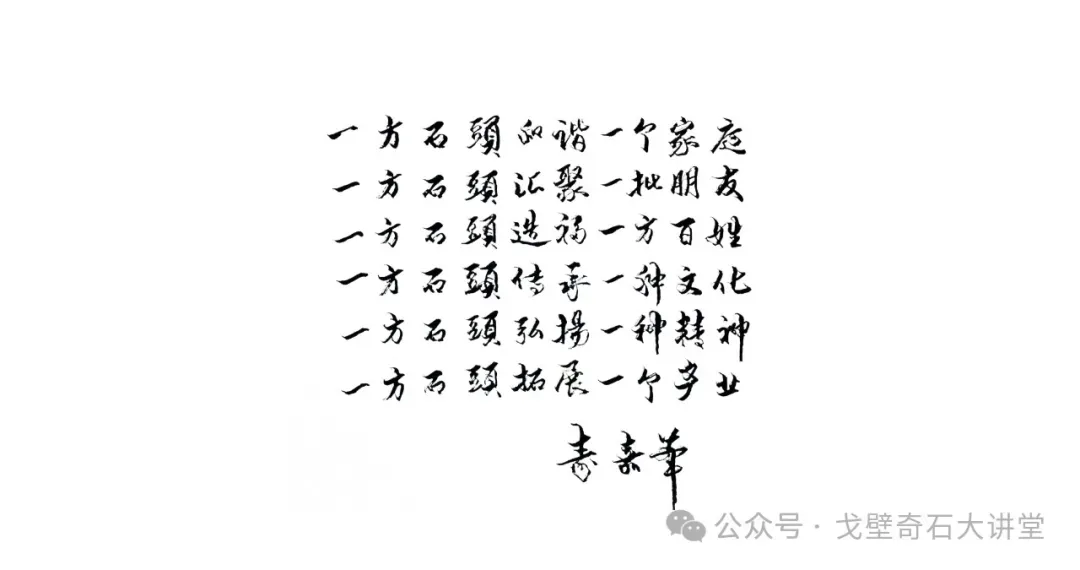 一方石頭和谐一个家庭
一方石頭汇聚一批朋友
一方石頭造福一方百姓
一方石頭传承一种文化
一方石頭弘揚一种精神
一方石頭拓展一个产业
寿嘉华
公众号·戈壁奇石大讲堂